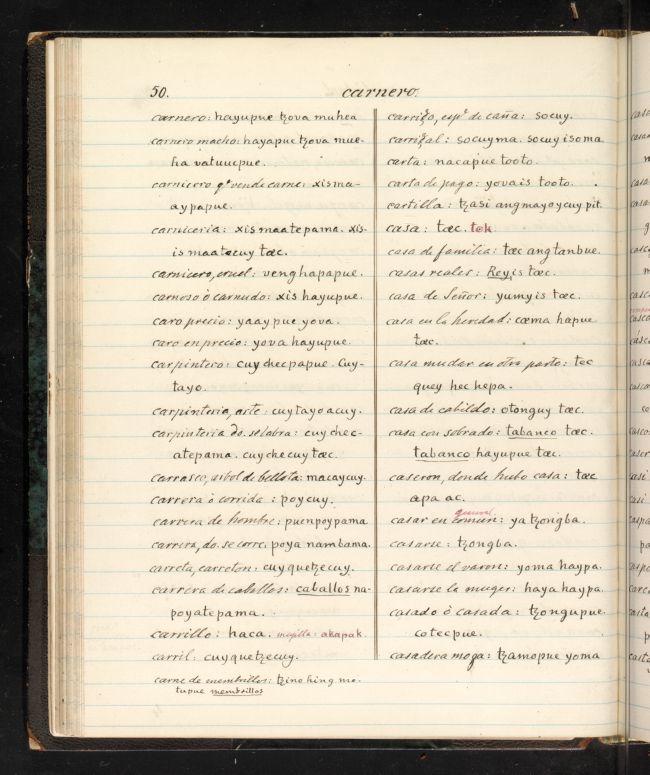 50.
carnero.
carnero: hayupue tzova muhea
carnero macho: hayapue tzova mue-
ha vatuucpue.
carnicero q.e vende carne: xisma-
aypapue.
carniceria: xis maatepama. xis-
is maatecuy tæc.
carnicero, cruel: venghapapue.
carnoso ò carnudo: xis hayupue.
caro precio: yaaypue yova.
caro en precio: yova hayupue.
carpintero: cuy checpapue. Cuy-
tayo.
carpinteria, arte: cuytayoacuy.
carpinteria do. se labra: cuychec-
atepama. cuychecuy tæc.
carrasco, arbol de bellota: macaycuy.
carrera ò corrida: poycuy.
carrera de hombre: puenpoypama
carrera, do. se corre: poya nambama.
carreta, carreton: cuyquetzecuy.
carrera de caballos: caballos na-
poyatepama.
carrillo: haca. mejilla: akapak.
carril: cuyquetzecuy.
carne de membrillos: tzinohing mo-
tupue membrillos
carrizo, esp.e de caña: socuy.
carrizal: socuyma. socuyisoma
carta: nacapue tooto.
carta de pago: yovais tooto.
cartilla: tzasi angmayoycuy pit.
casa: tæc. tok
casa de familia: tæc angtanbue.
casas reales: Reyis tæc.
casa de Señor: yumyis tæc.
casa en la heredad: cæma hapue
tæc.
casa mudar en otra parte: tec
quey hec hepa.
casa de cabildo: otonguy tæc.
casa con sobrado: tabanco tæc.
tabanco hayupue tæc.
caseron, donde hubo casa: tæc
apa ac.
general
casar en comun: ya tzongba.
casarse: tzongba.
casarse el varon: yoma haypa.
casarse la muger: haya haypa.
casado ò casada: tzongupue.
cotecpue.
casadera moza: tzamopue yoma